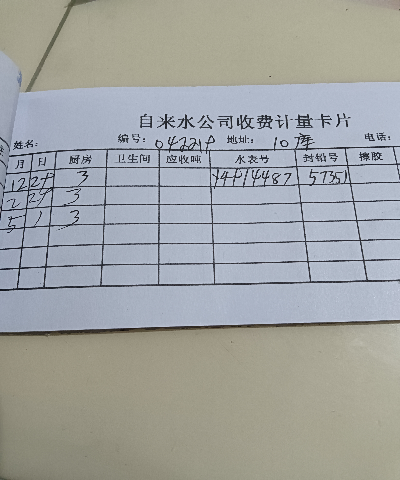 自来水公司收费计量卡片
姓名: 编号: 地址: 10库 电话:
月 日 厨房 卫生间 应收吨 水表号 封铅号 擦胶
12 24 3 57351
2 24 3
5 1 3